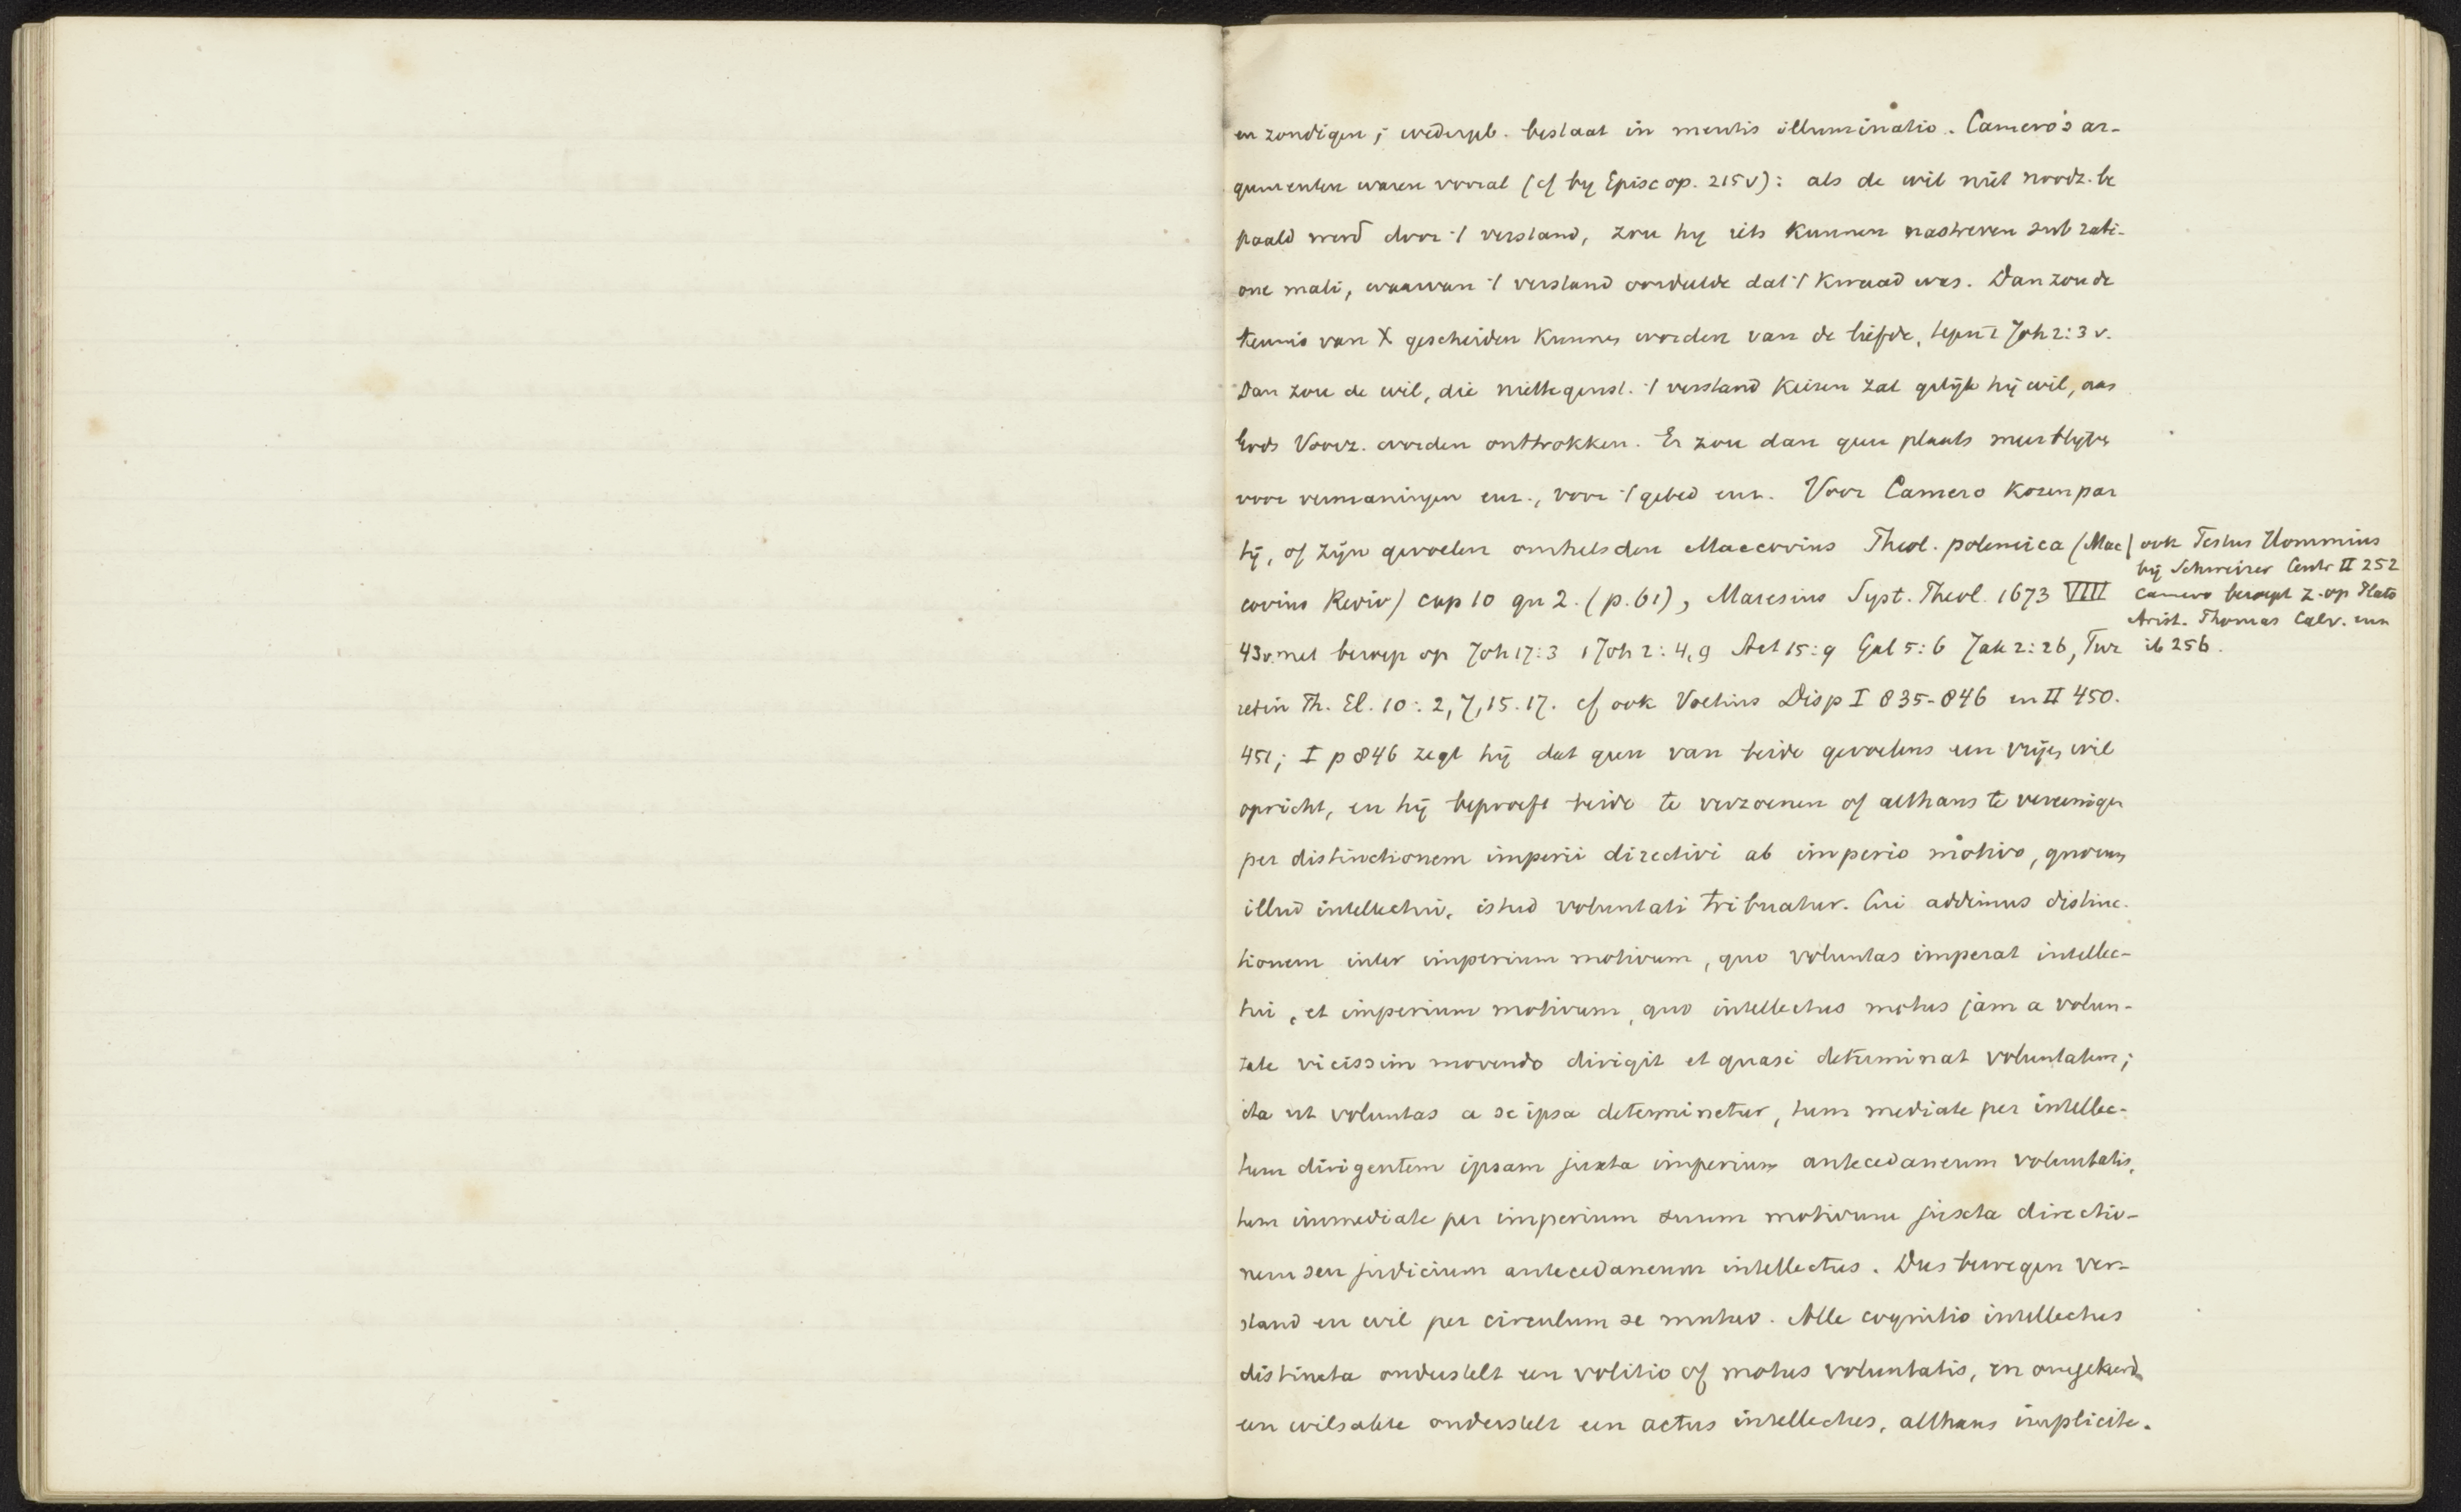 en zondigen; wedergeb. bestaat in mentis illuminatio. Camero's ar-
gumenten waren vooral (cf by Episcop. 215v): als de wil niet noodz. be
paald werd door 't verstand, zou hy iets kunnen nastreven sub rati-
one mali, waarvan 't verstand oordeelde dat 't kwaad was. Dan zou de
kennis van X gescheiden kunnen worden van de liefde, tegen 1 Joh 2:3 v.
Dan zou de wil, die niettegenst. 't verstand kiezen zal gelijk hij wil, aan
Gods Voorz. worden onttrokken. Er zou dan geen plaats meer blijven
voor vermaningen enz., voor 't gebed enz. Voor Camero kozen par
tij, of zijn gevoelen omhelsden Maccovius Theol. polemica (Mac
covius Rediv) cap 10 qu 2. (p. 61), Maresius Syst. Theol. 1673 VIII
43v. met beroep op Joh 17:3 1 Joh 2:4,9 Act 15:9 Gal 5:6 Jak 2:26, Tur
retin Th. El. 10: 2,7,15.17. cf ook Voetius Disp I 835-846 en II 450.
451; I p 846 zegt hij dat geen van beide gevoelens een vrijen wil
opricht, en hij beproeft beide te verzoenen of althans te vereenigen
per distinctionem imperii directivi ab imperio motivo, quorum
illud intellectui, istud voluntati tribuatur. Cui addimus distinc-
tionem inter imperium motivum, quo voluntas imperat intellec-
tui, et imperium motivum, quo intellectus motus jam a volun-
tate vicissim movendo dirigit et quasi determinat voluntatem;
ita ut voluntas a se ipsa determinetur, tum mediate per intellec-
tum dirigentem ipsam juxta imperium antecedaneum voluntatis,
tum immediate per imperium suum motivum juxta directio-
nem seu judicium antecedaneum intellectus. Dus bewegen ver-
stand en wil per circulum se mutuo. Alle cognitio intellectus
distincta onderstelt een volitio of motus voluntatis, en omgekeerd
een wilsakte onderstelt een actus intellectus, althans implicite.
ook Festus Hommius
bij Schweizer Centr II 252
Camero beroept z. op Plato
Arist. Thomas Calv. enz
ib 256.